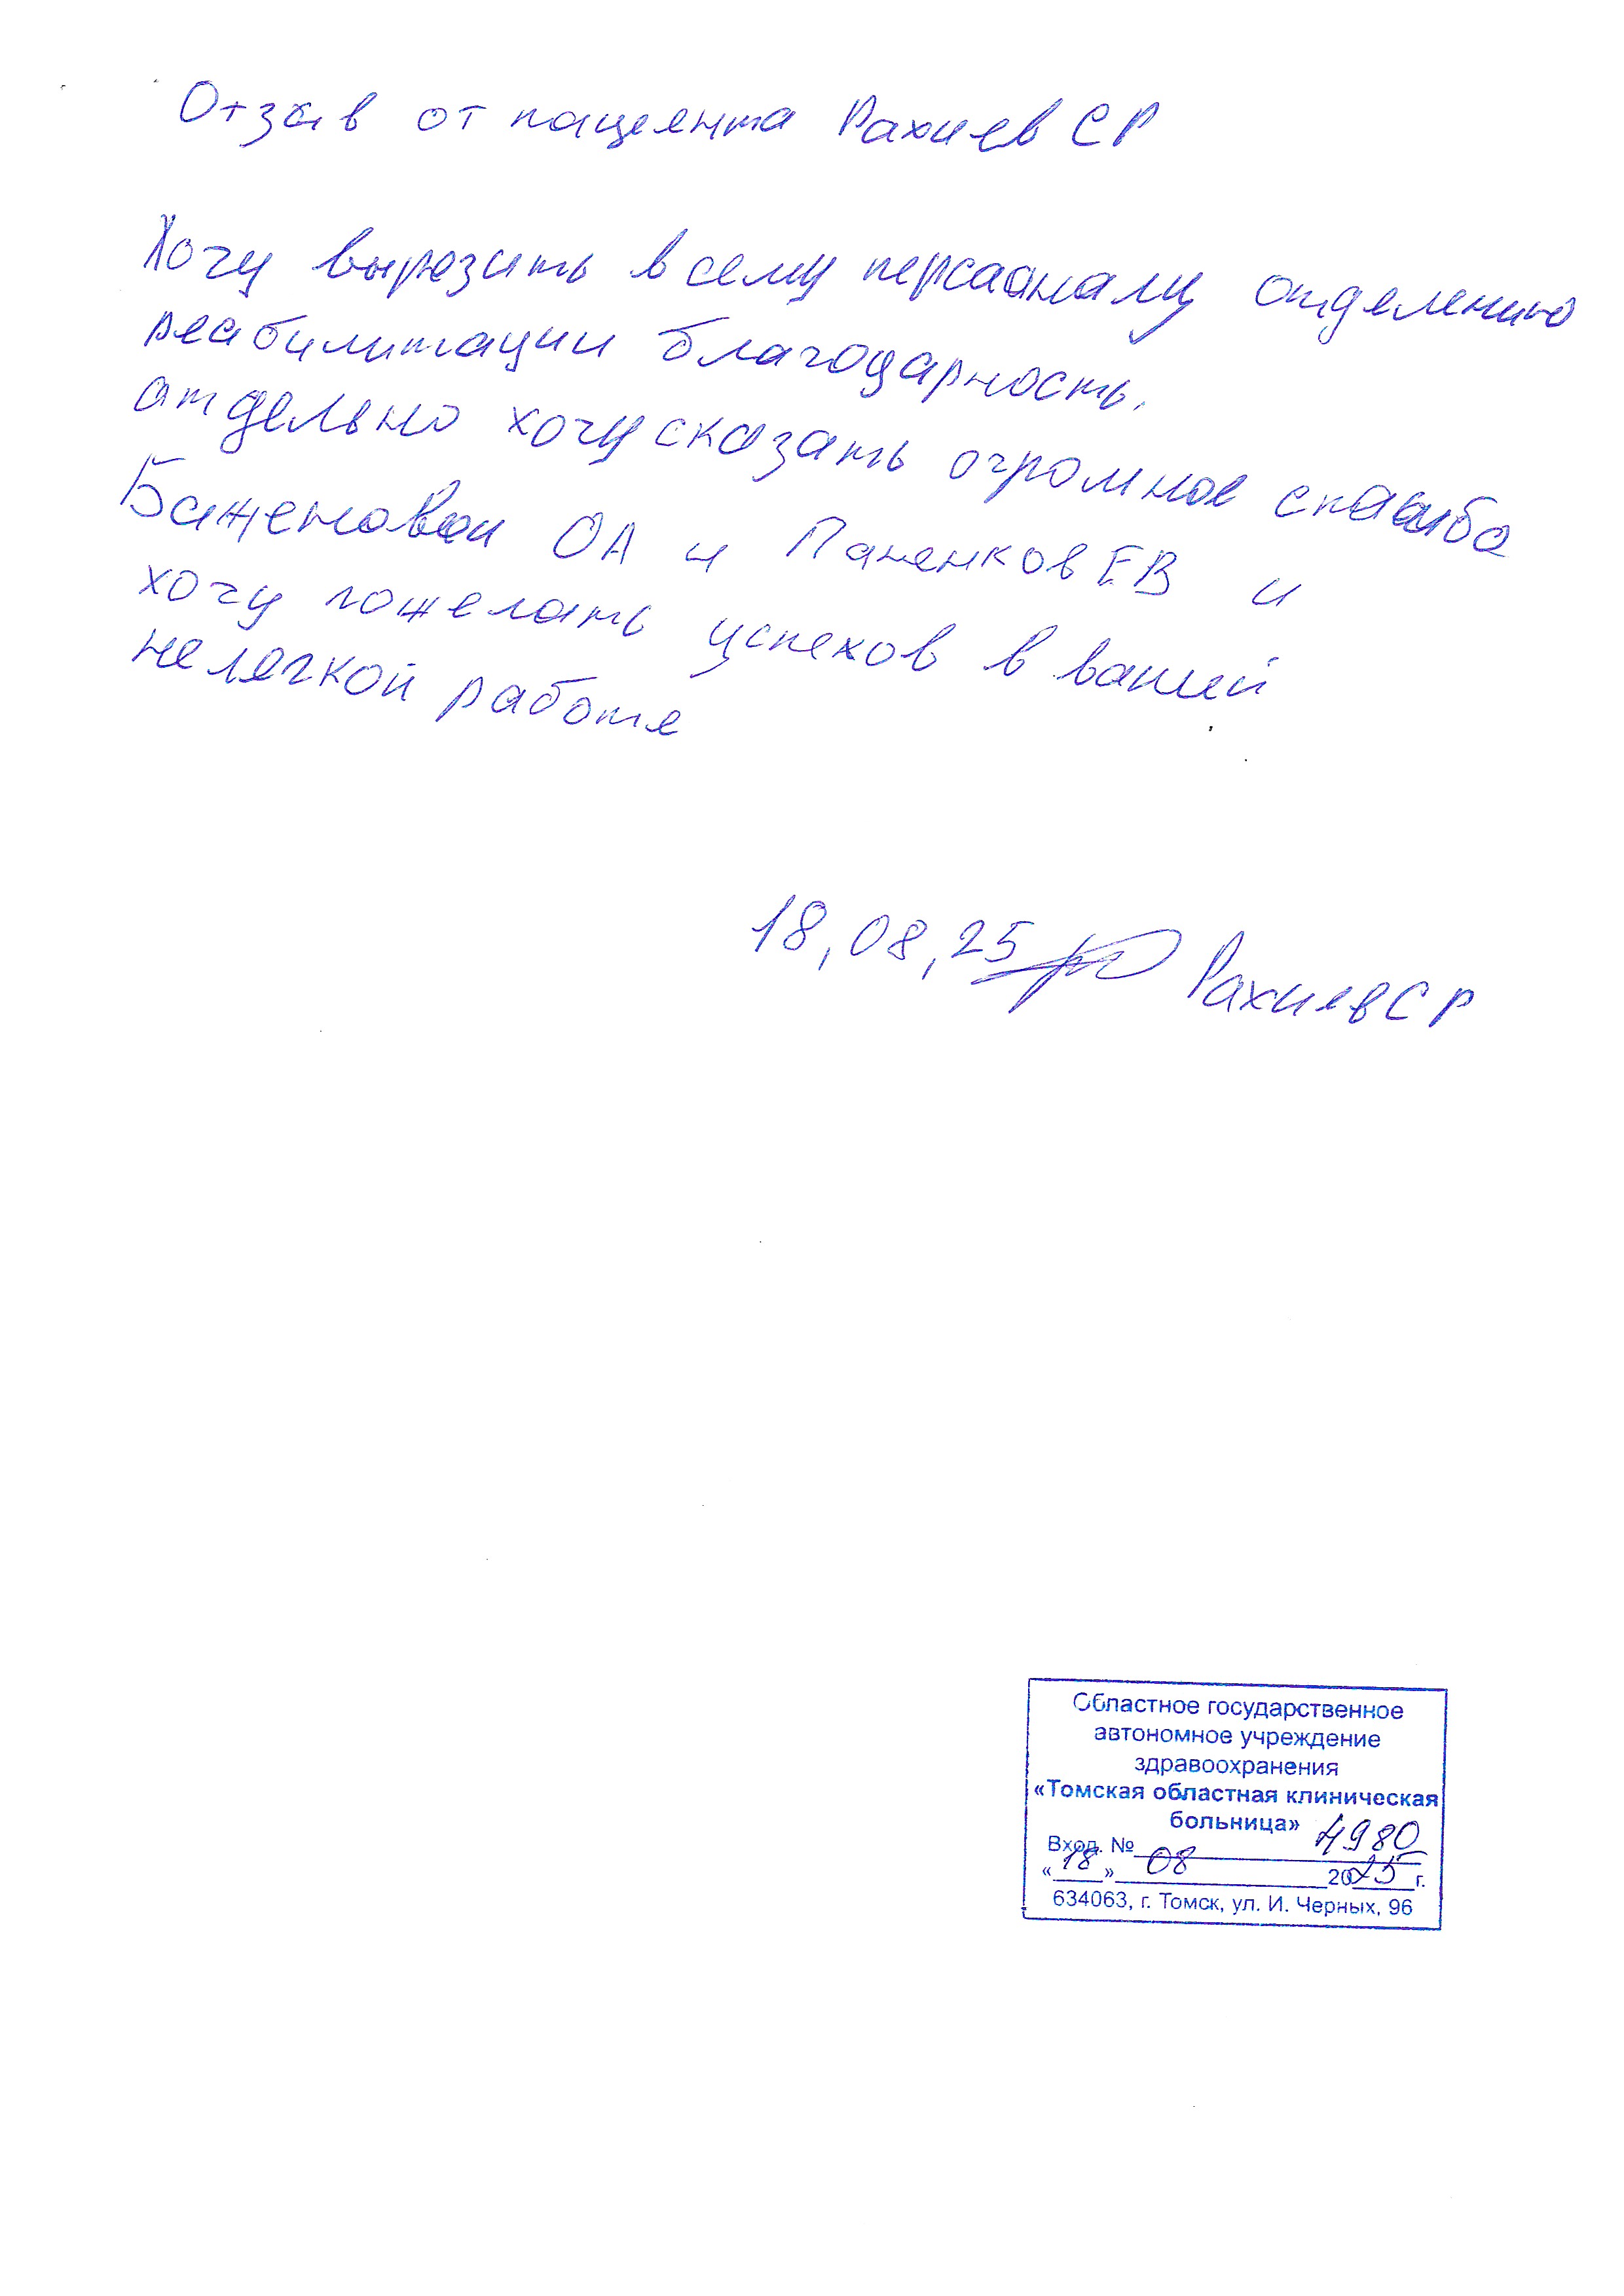 Отзыв от пациента Рахиев СР
Хочу выразить всему персаналу отделению
реабилитации благодарность.
атдельно хочу сказать огромное спасибо
Баженовой ОА и Паненков ЕВ и
хочу пожелать успехов в вашей
нелегкой работе
18,08,25 Рахиев СР
Областное государственное
автономное учреждение
здравоохранения
«Томская областная клиническая
больница»
Вход. № 4980
«18» 08 2025 г.
634063, г. Томск, ул. И. Черных, 96